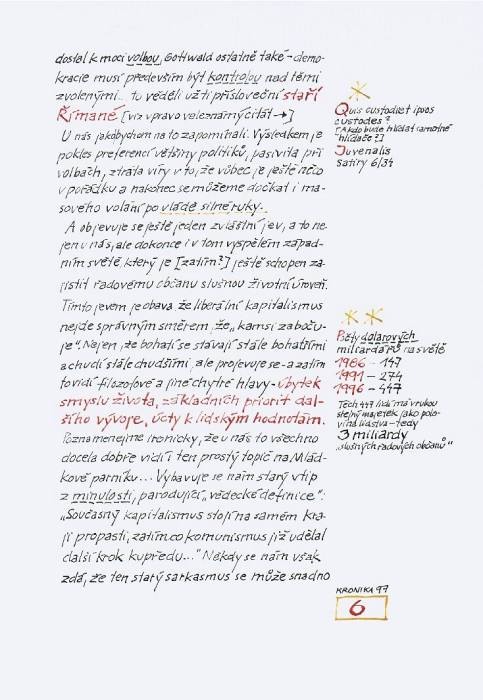 dostal k moci volbou, Gottwald ostatně také - demo-
kracie musí především být kontrolou nad těmi
zvolenými... to věděli už ti přísloveční staří
Římané [viz vpravo veleznámý citát →]
U nás jakobychom na to zapomínali. Výsledkem je
pokles preferencí většiny politiků, pasivita při
volbách, ztráta víry v to, že vůbec je ještě něco
v pořádku a nakonec se můžeme dočkat i ma-
sového volání po vládě silné ruky.
A objevuje se ještě jeden zvláštní jev, a to ne-
jen u nás, ale dokonce i v tom vyspělém západ-
ním světě, který je [zatím?] ještě schopen za-
jistit řadovému občanu slušnou životní úroveň.
Tímto jevem je obava, že liberální kapitalismus
nejde správným směrem, že „kamsi zaboču-
je“. Nejen, že bohatí se stávají stále bohatšími
a chudí stále chudšími, ale projevuje se - a zatím
to vidí filozofové a jiné chytré hlavy - úbytek
smyslu života, základních priorit dal-
šího vývoje, úcty k lidským hodnotám.
Poznamenejme ironicky, že u nás to všechno
docela dobře vidí i ten prostý topič na Mláď-
kově parníku... Vybavuje se nám starý vtip
z minulosti, parodující „vědecké definice“:
„Současný kapitalismus stojí na samém kra-
ji propasti, zatímco komunismus již udělal
další krok kupředu...“ Někdy se nám však
zdá, že ten starý sarkasmus se může snadno
Quis custodiet ipsos
custodes?
[A kdo bude hlídat samotné
hlídače?]
Juvenalis
satiry 6/34
Počty dolarových
miliardářů na světě
1986 - 147
1991 - 274
1996 - 447
Těch 447 lidí má v rukou
stejný majetek jako polo-
vina lidstva - tedy
3 miliardy
„slušných řadových občanů“
KRONIKA 97
6